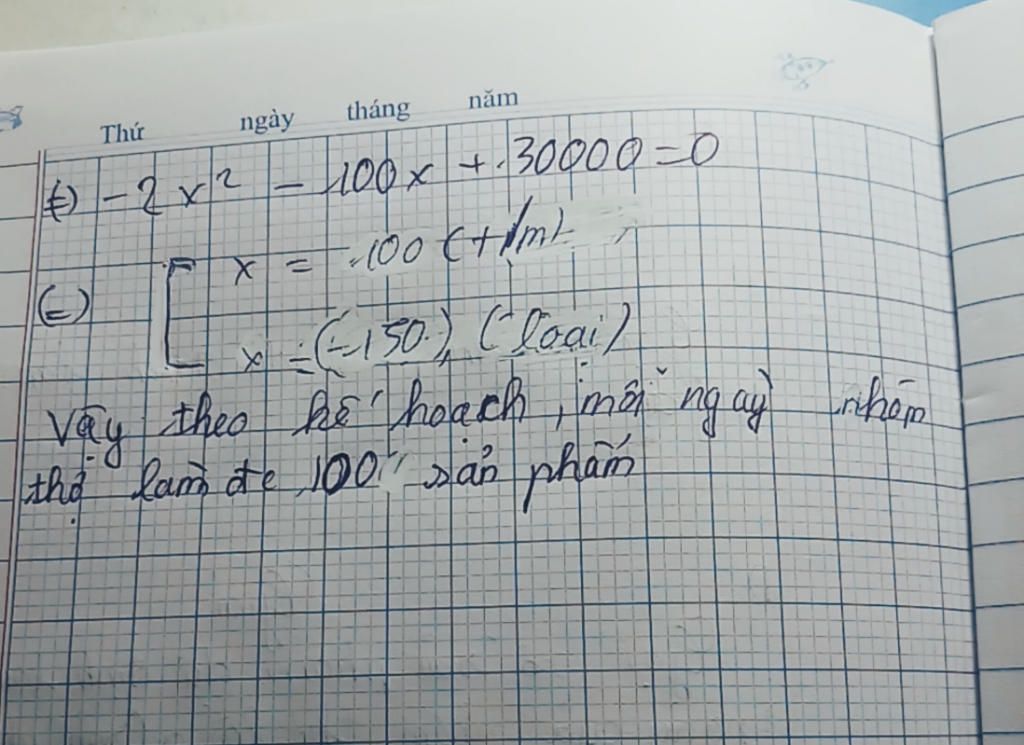 Thứ ngày tháng năm
(=) -2x² - 100x + 30000 = 0
(=) [ x = 100 (+/m)
x = (-150), (loại)
Vậy theo kế hoạch, mỗi ngày nhóm
thợ làm đc 100 sản phẩm